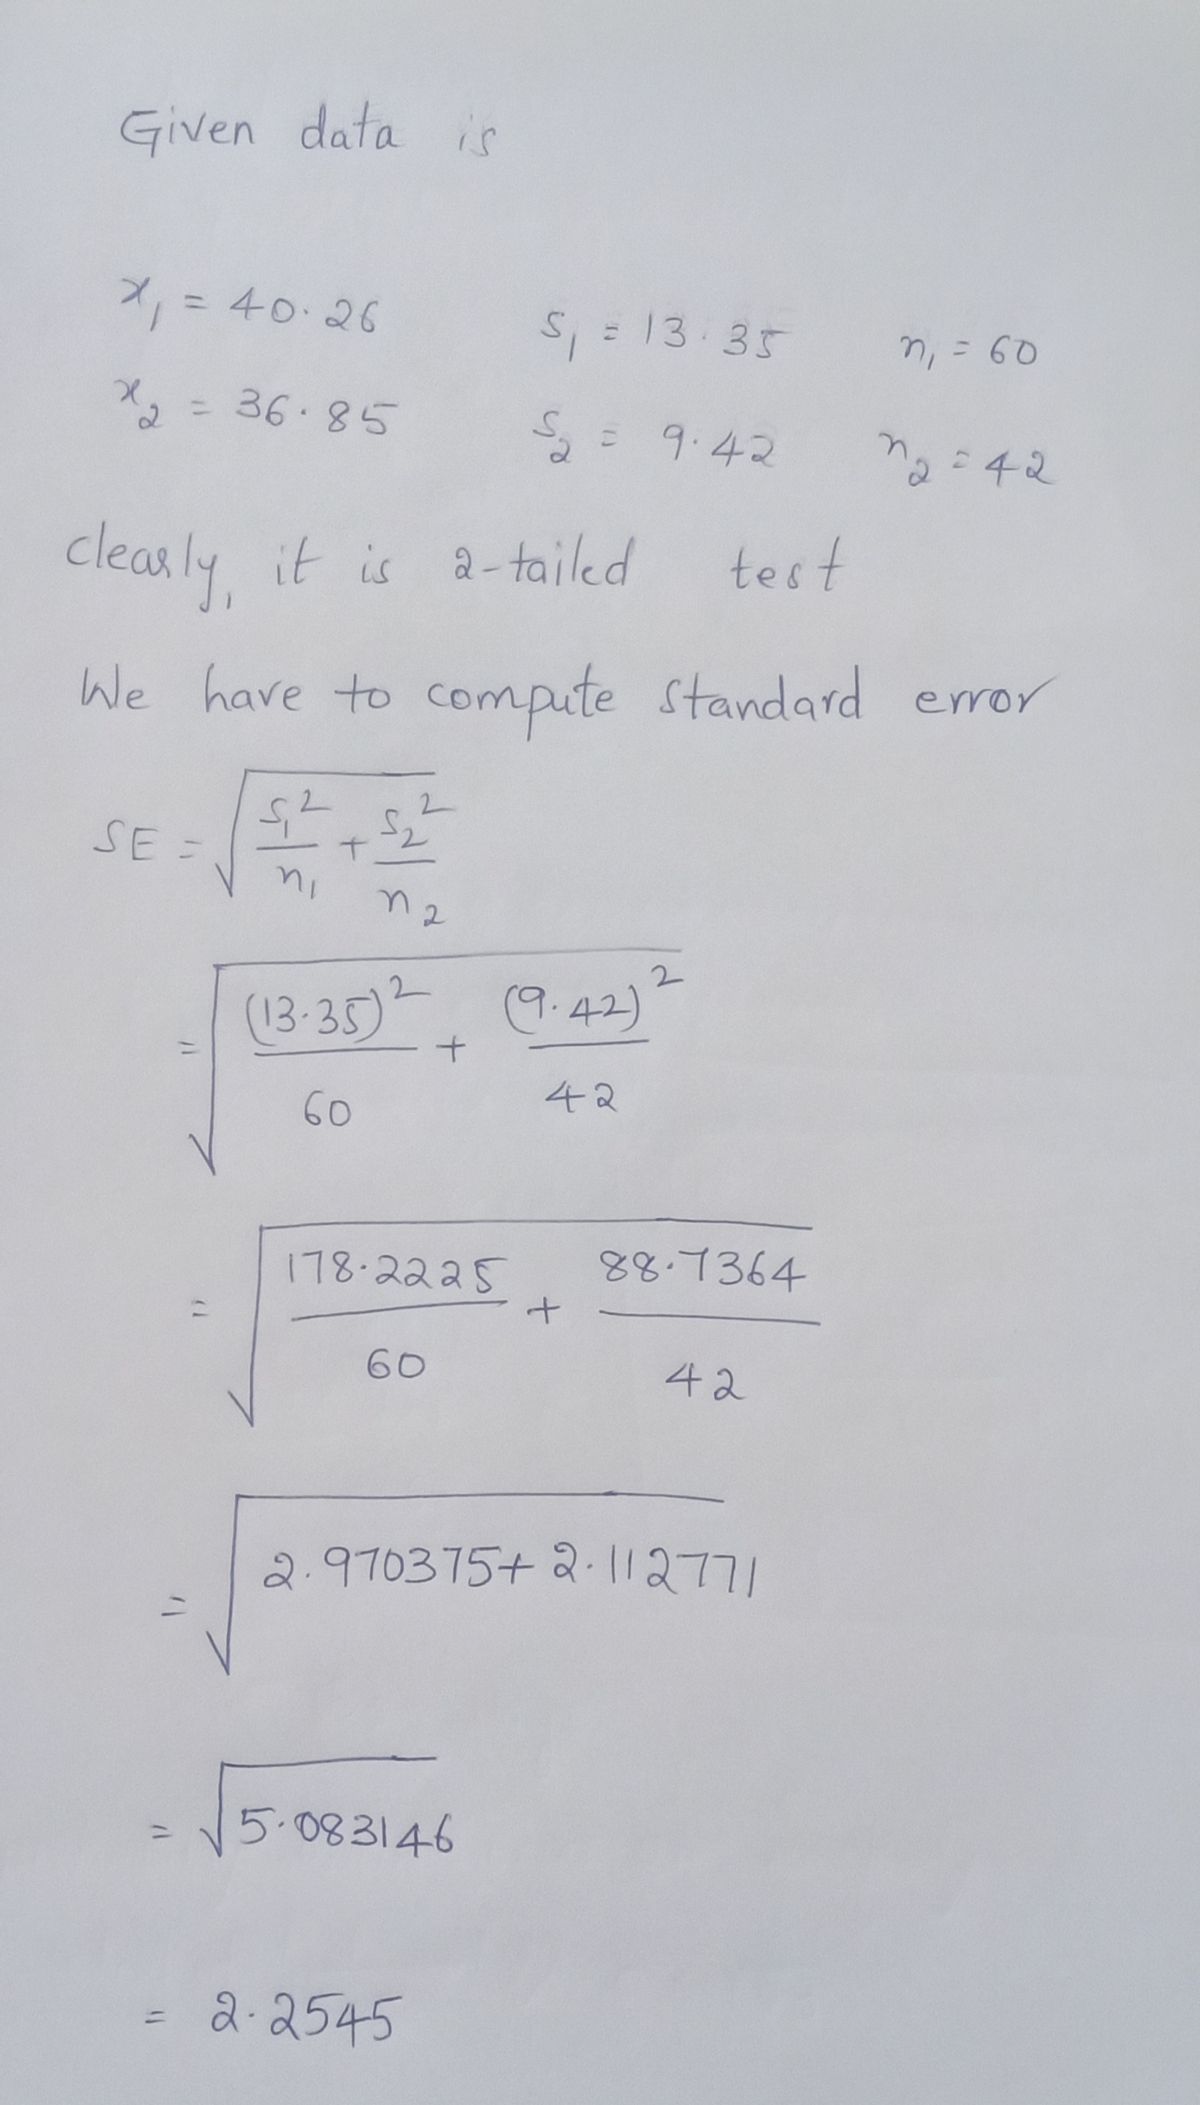 Given data is
x₁ = 40.26 s₁ = 13.35 n₁ = 60
x₂ = 36.85 s₂ = 9.42 n₂ = 42
clearly, it is 2-tailed test
We have to compute standard error
SE = √(s₁²/n₁ + s₂²/n₂)
= √((13.35)²/60 + (9.42)²/42)
= √(178.2225/60 + 88.7364/42)
= √(2.970375 + 2.112771)
= √5.083146
= 2.2545